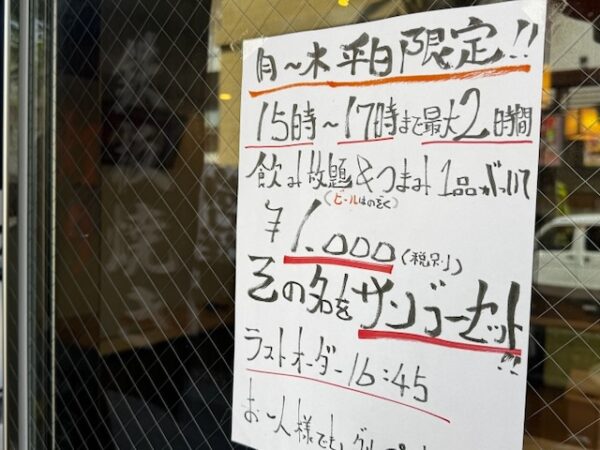 月〜木 平日限定!!
15時〜17時まで最大2時間
飲み放題&つまみ1品がついて
(ビールはのぞく)
¥1.000(税別)
その名をサンゴーセット!!
ラストオーダー16:45
お一人様でも、グループ